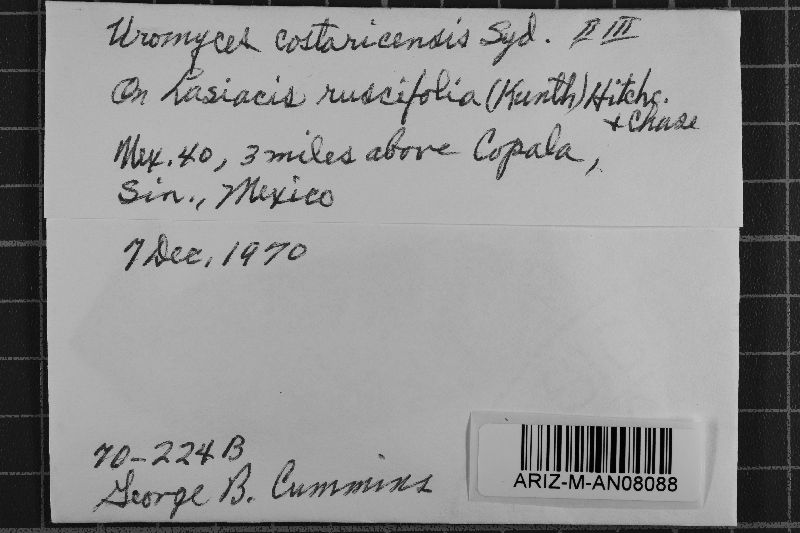 Uromyces costaricensis Syd. II III
On Lasiacis ruscifolia (Kunth) Hitchc.
+ Chase
Mex. 40, 3 miles above Copala,
Sin., Mexico
7 Dec, 1970
70-224B
George B. Cummins
ARIZ-M-AN08088